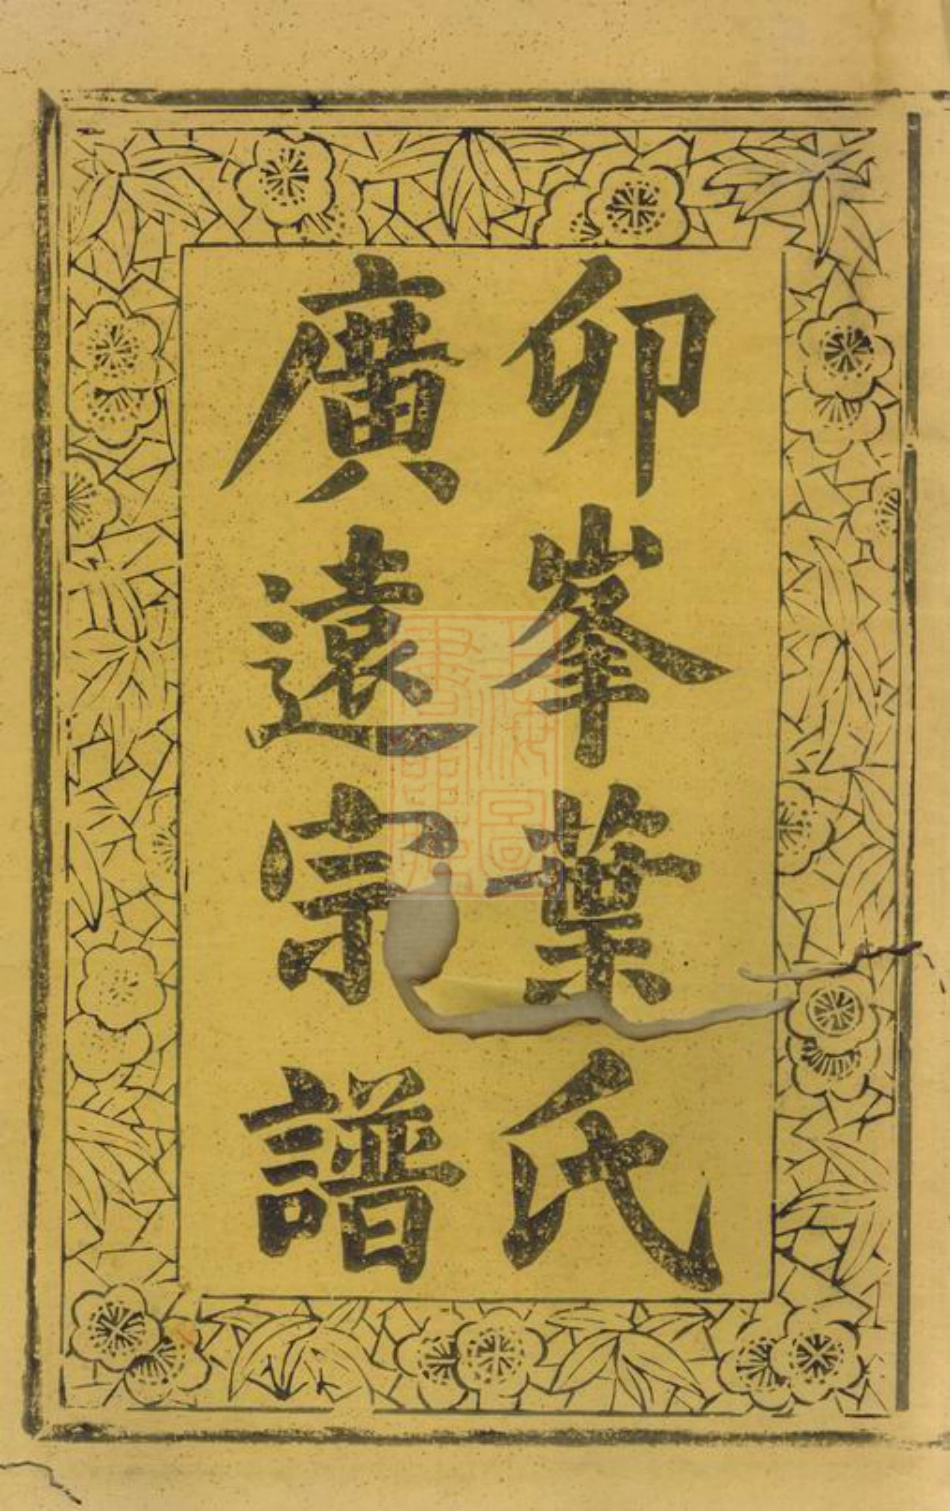 卯峯葉氏
廣遠宗譜